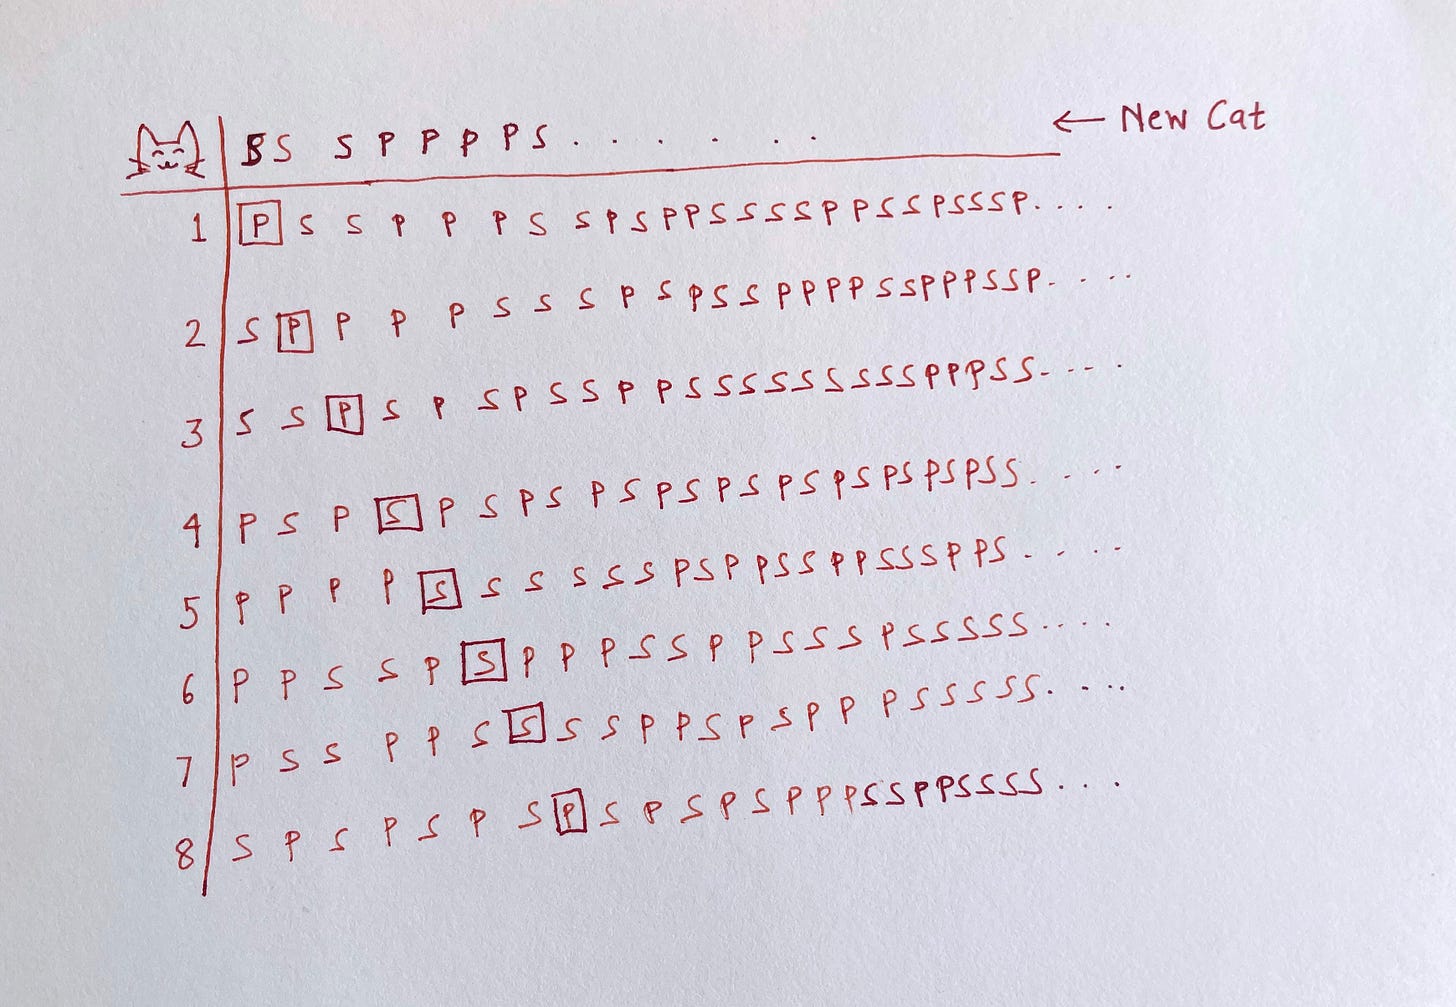 S S P P P P S . . . . . . ← New Cat
1 P S S P P P S S P S P P S S S S P P S S P S S S P . . . .
2 S P P P P S S S P S P S S P P P P S S P P P S S P . . . .
3 S S P S P S P S S P P S S S S S S S S S P P P S S . . . .
4 P S P S P S P S P S P S P S P S P S P S P S P S S . . . .
5 P P P P S S S S S S P S P P S S P P S S S P P S . . . .
6 P P S S P S P P P S S P P S S S P S S S S S . . . .
7 P S S P P S S S S P P S P S P P P S S S S S . . . .
8 S P S P S P S P S P S P S P P P S S P P S S S S . . .